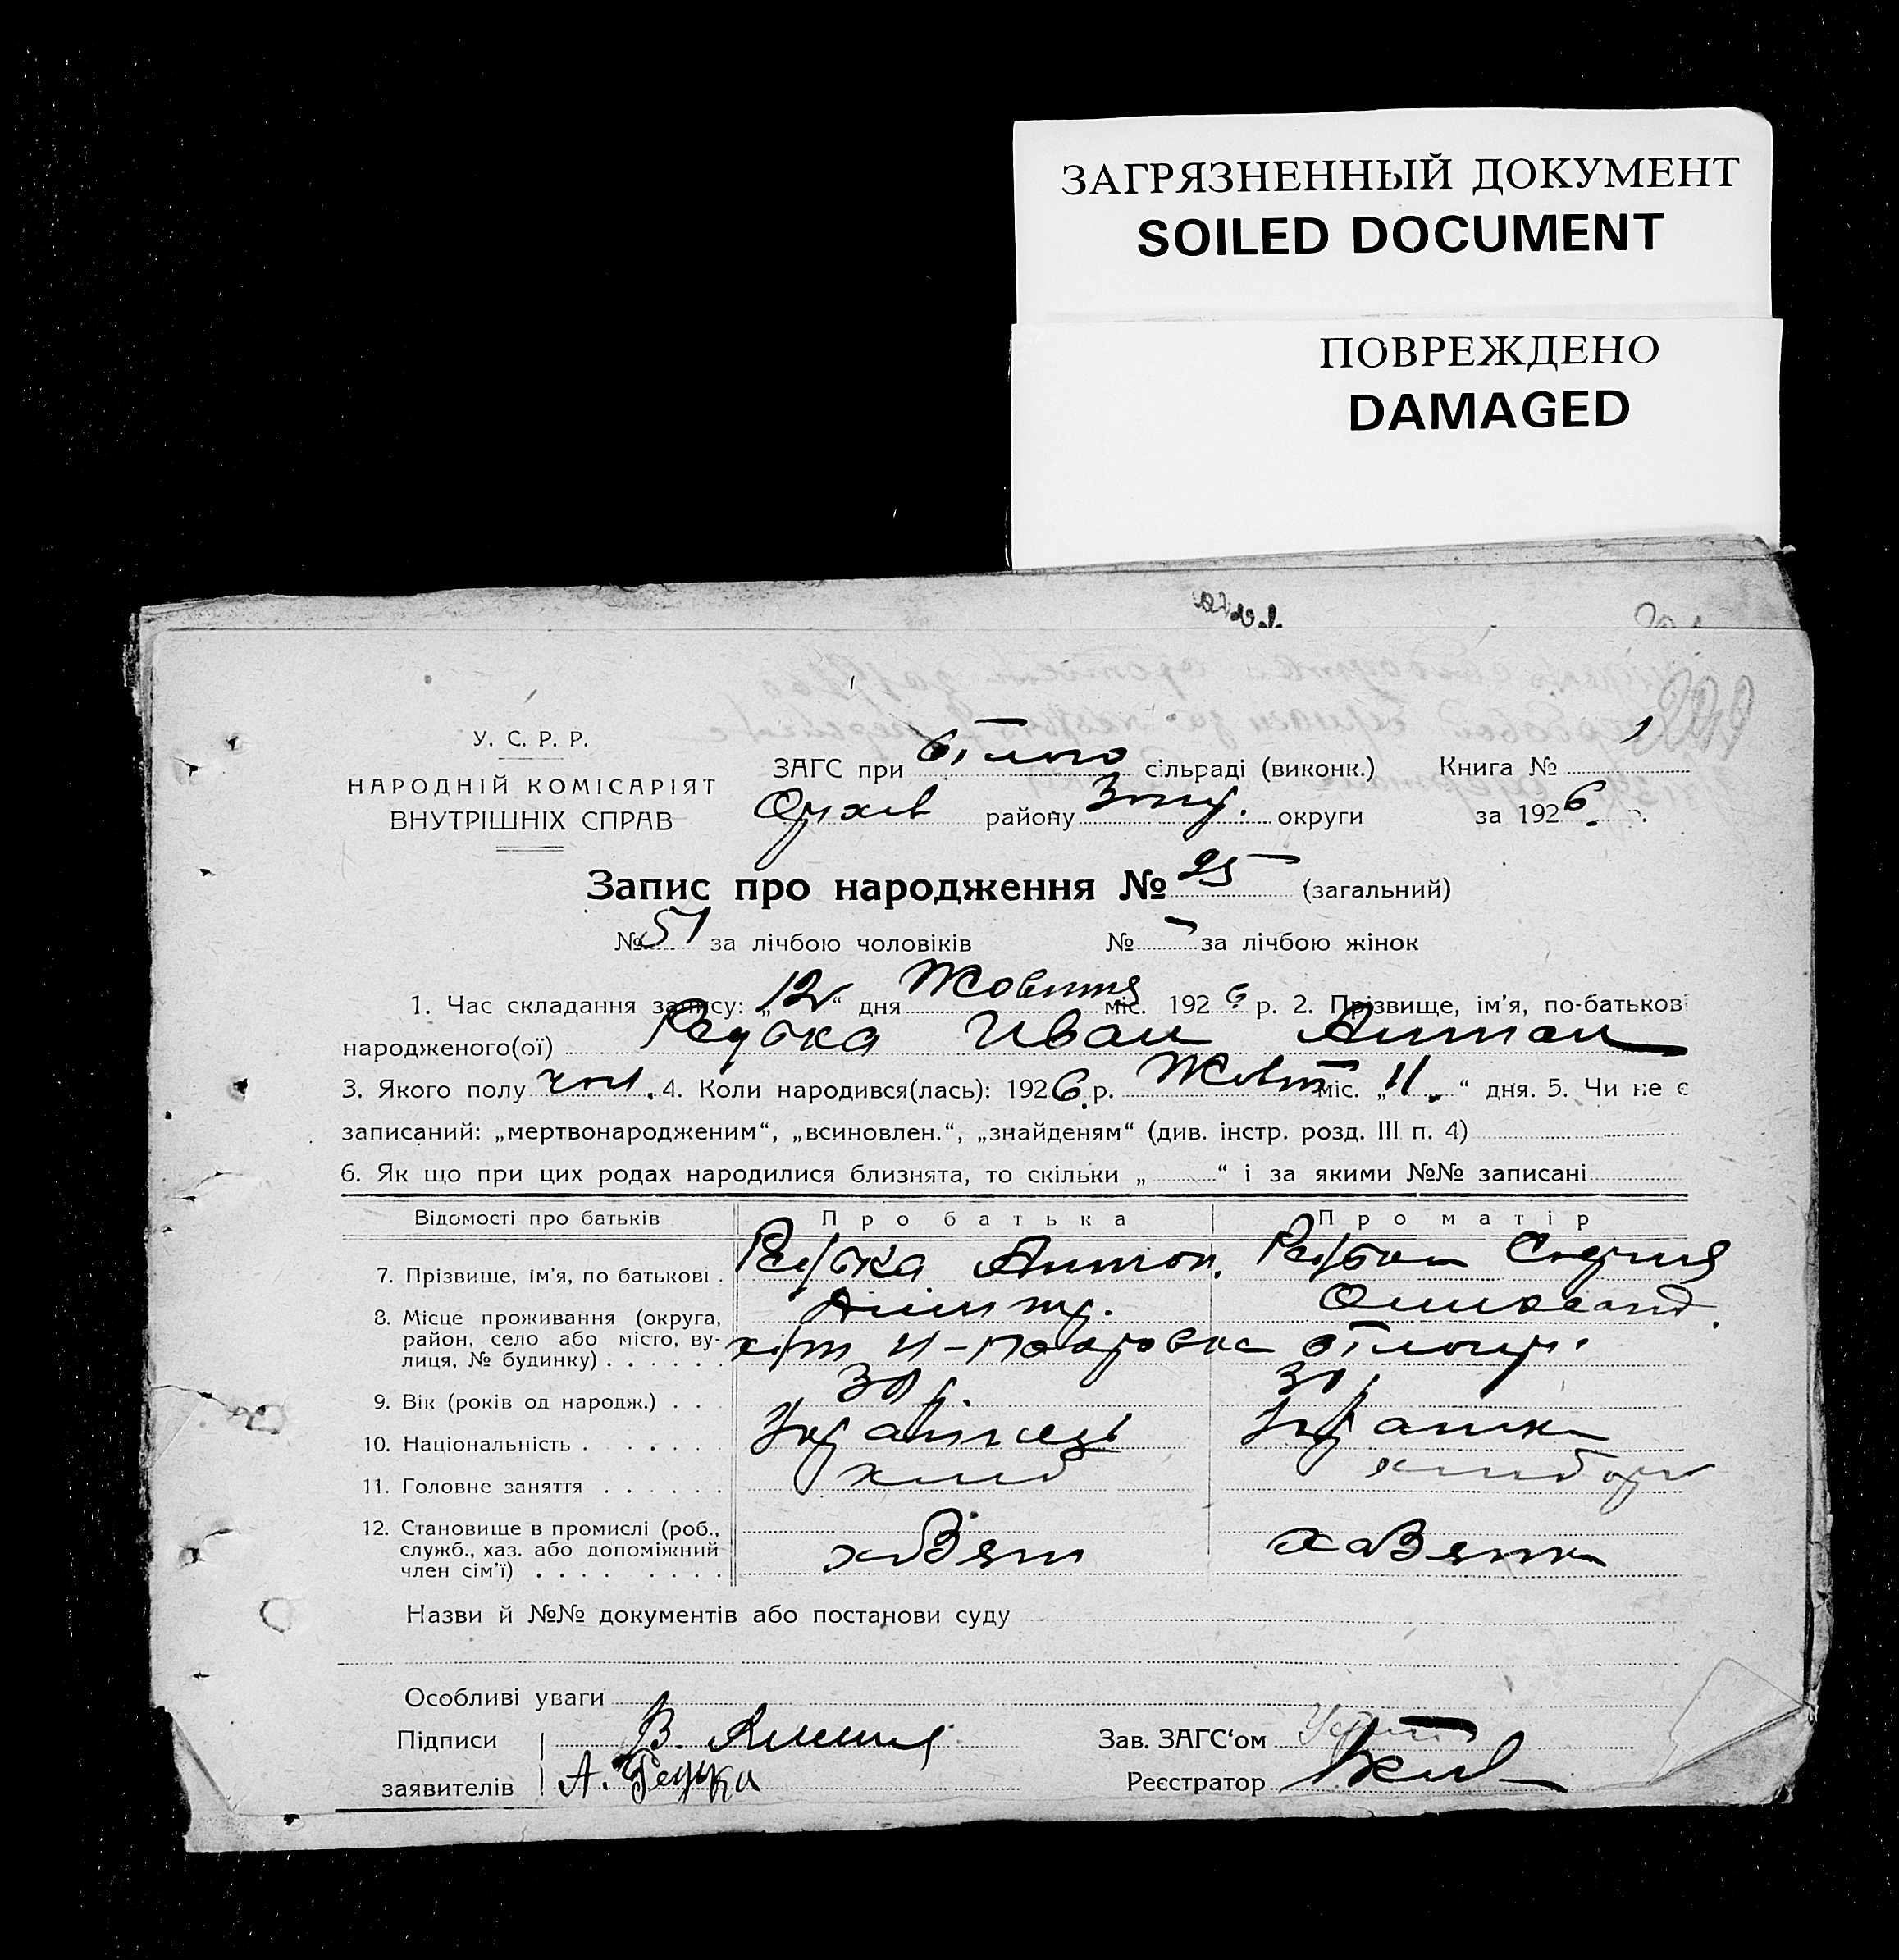 ЗАГРЯЗНЕННЫЙ ДОКУМЕНТ
SOILED DOCUMENT
ПОВРЕЖДЕНО
DAMAGED
У. С. Р. Р.
НАРОДНІЙ КОМІСАРІЯТ
ВНУТРІШНІХ СПРАВ
ЗАГС при сільраді (виконк.) Книга № 1
Оріхів району Запор. округи за 1926 р.
Запис про народження № 95 (загальний)
№ 51 за лічбою чоловіків № — за лічбою жінок
1. Час складання запису: „12“ дня Жовтня міс. 1926 р. 2. Прізвище, ім'я, по-батькові
народженого(ої) Редька Иван Антон
3. Якого полу чол. 4. Коли народився(лась): 1926 р. Жовт міс. „11“ дня. 5. Чи не є
записаний: „мертвонародженим“, „всиновлен.“, „знайденям“ (див. інстр. розд. III п. 4)
6. Як що при цих родах народилися близнята, то скільки „ “ і за якими №№ записані
Відомості про батьків Про батька Про матір
7. Прізвище, ім'я, по батькові . Редька Антон. Редька
8. Місце проживання (округа,
район, село або місто, ву-
лиця, № будинку) . . . . . . хут Н-Покровка
9. Вік (років од народж.) . . . 30 р 30 р
10. Національність . . . . . . Українець Українка
11. Головне заняття . . . . . . хліб хлібор
12. Становище в промислі (роб.,
служб., хаз. або допоміжний
член сім'ї) . . . . . . . .
Назви й №№ документів або постанови суду
Особливі уваги
Підписи В. Зав. ЗАГС'ом
заявителів А. Редька Реєстратор